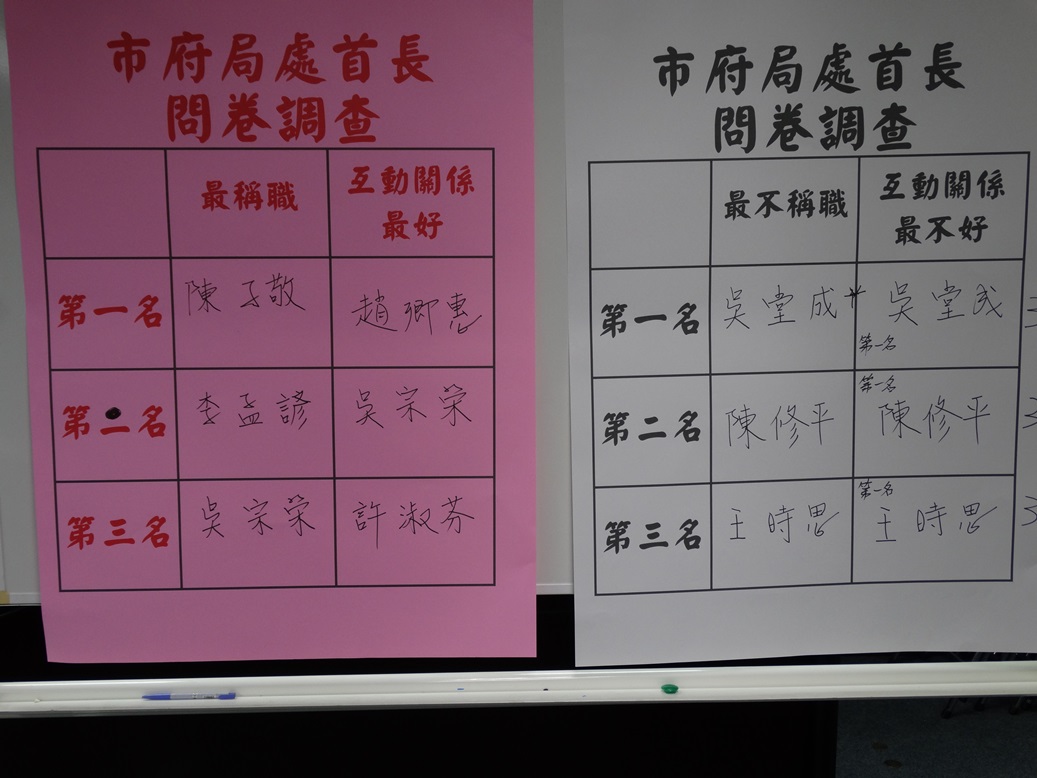 市府局處首長
問卷調查
最稱職
互動關係
最好
第一名
陳子敬
趙卿惠
第二名
李孟諺
吳宗榮
第三名
吳宗榮
許淑芬
市府局處首長
問卷調查
最不稱職
互動關係
最不好
第一名
吳堂成*
吳堂成
第一名
第二名
陳修平
第一名
陳修平
第三名
王時思
第一名
王時思